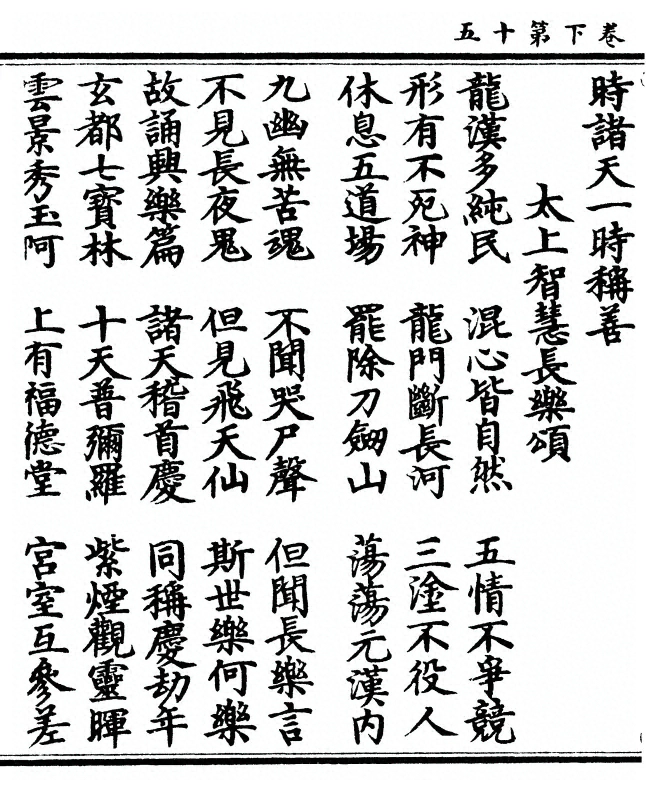 卷下第十五
時諸天一時稱善
太上智慧長樂頌
龍漢多純民 混心皆自然 五情不爭競
形有不死神 龍門斷長河 三塗不役人
休息五道場 罷除刀劒山 蕩蕩元漢內
九幽無苦魂 不聞哭尸聲 但聞長樂言
不見長夜鬼 但見飛天仙 斯世樂何樂
故誦興樂篇 諸天稽首慶 同稱慶劫年
玄都七寶林 十天普彌羅 紫煙觀靈暉
雲景秀玉阿 上有福德堂 宮室互參差